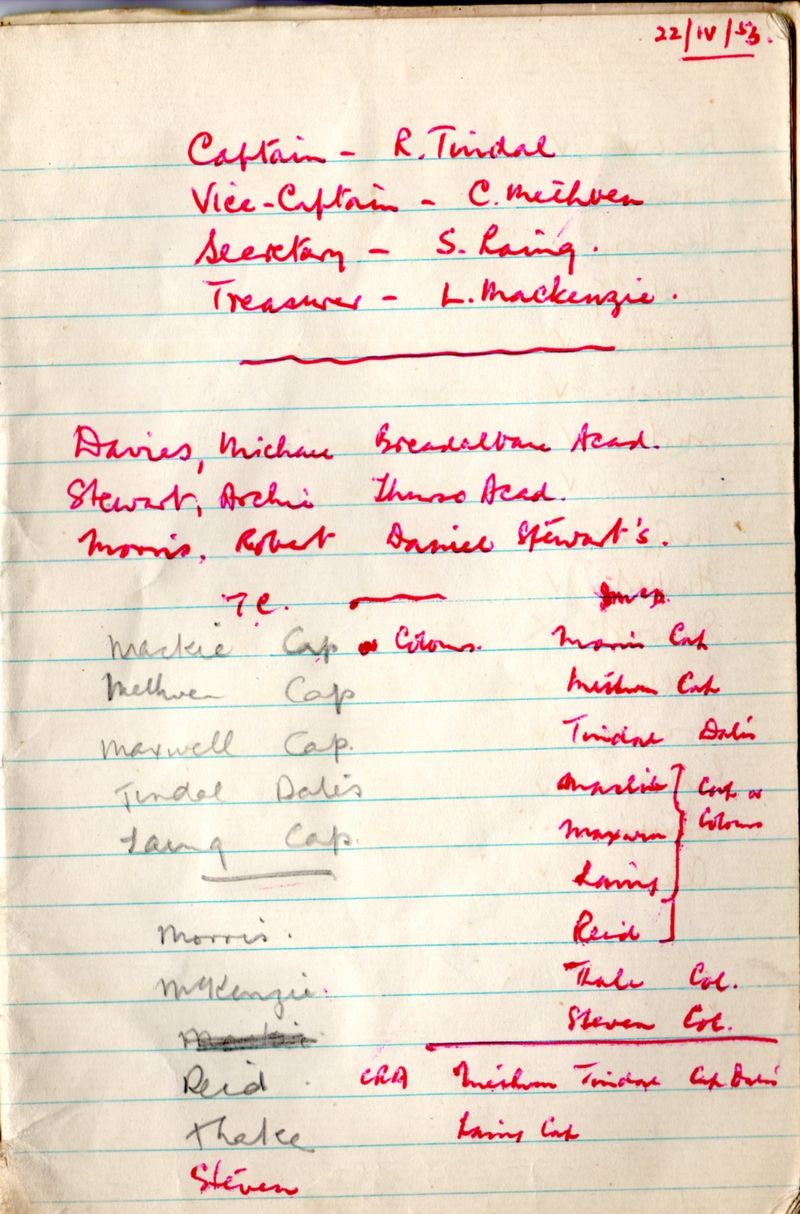 22/IV/53.
Captain - R. Tindal
Vice-Captain - C. Methven
Secretary - S. Laing.
Treasurer - L. Mackenzie.
Davies, Michael Breadalbane Acad.
Stewart, Archie Thurso Acad.
Morris, Robert Daniel Stewart's.
7 C.
Mackie Cap or Colours. Morris Cap
Methven Cap Methven Cap
Maxwell Cap. Tindal Dates
Tindal Dates Mackie Cap or
Laing Cap. Maxwell Colours
Laing
Morris. Reid
McKenzie. Thake Col.
Mackie Steven Col.
Reid CRA Methven Tindal Cap Dates
Thake Laing Cap
Steven